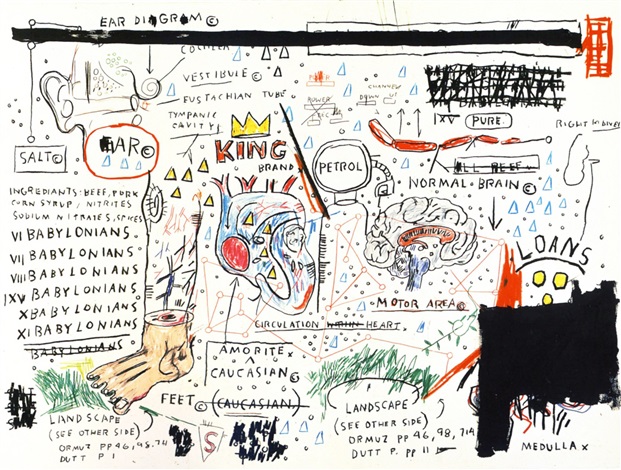 EAR DIAGRAM©
COCHLEA
VESTIBULE©
EUSTACHIAN TUBE
TYMPANIC
CAVITY
EAR©
SALT©
INGREDIANTS: BEEF, PORK
CORN SYRUP / NITRITES
SODIUM NITRATES, SPICES
VI BABYLONIANS
VII BABYLONIANS
VIII BABYLONIANS
IXV BABYLONIANS
X BABYLONIANS
XI BABYLONIANS
BABYLONIANS
KING
BRAND
POWER
REC
CHANNEL
DOWN
PETROL
BABYLONIANS
IXV PURE.
ALL BEEF
NORMAL BRAIN©
RIGHT
LOANS
MOTOR AREA©
CIRCULATION WITHIN HEART.
AMORITE x
CAUCASIAN©
(CAUCASIAN)
FEET©
S
LANDSCAPE
(SEE OTHER SIDE)
ORMUZ PP 46, 98, 714
DUTT P. 1
LANDSCAPE
(SEE OTHER SIDE)
ORMUZ PP 46, 98, 714
DUTT P. PP 11
MEDULLA x